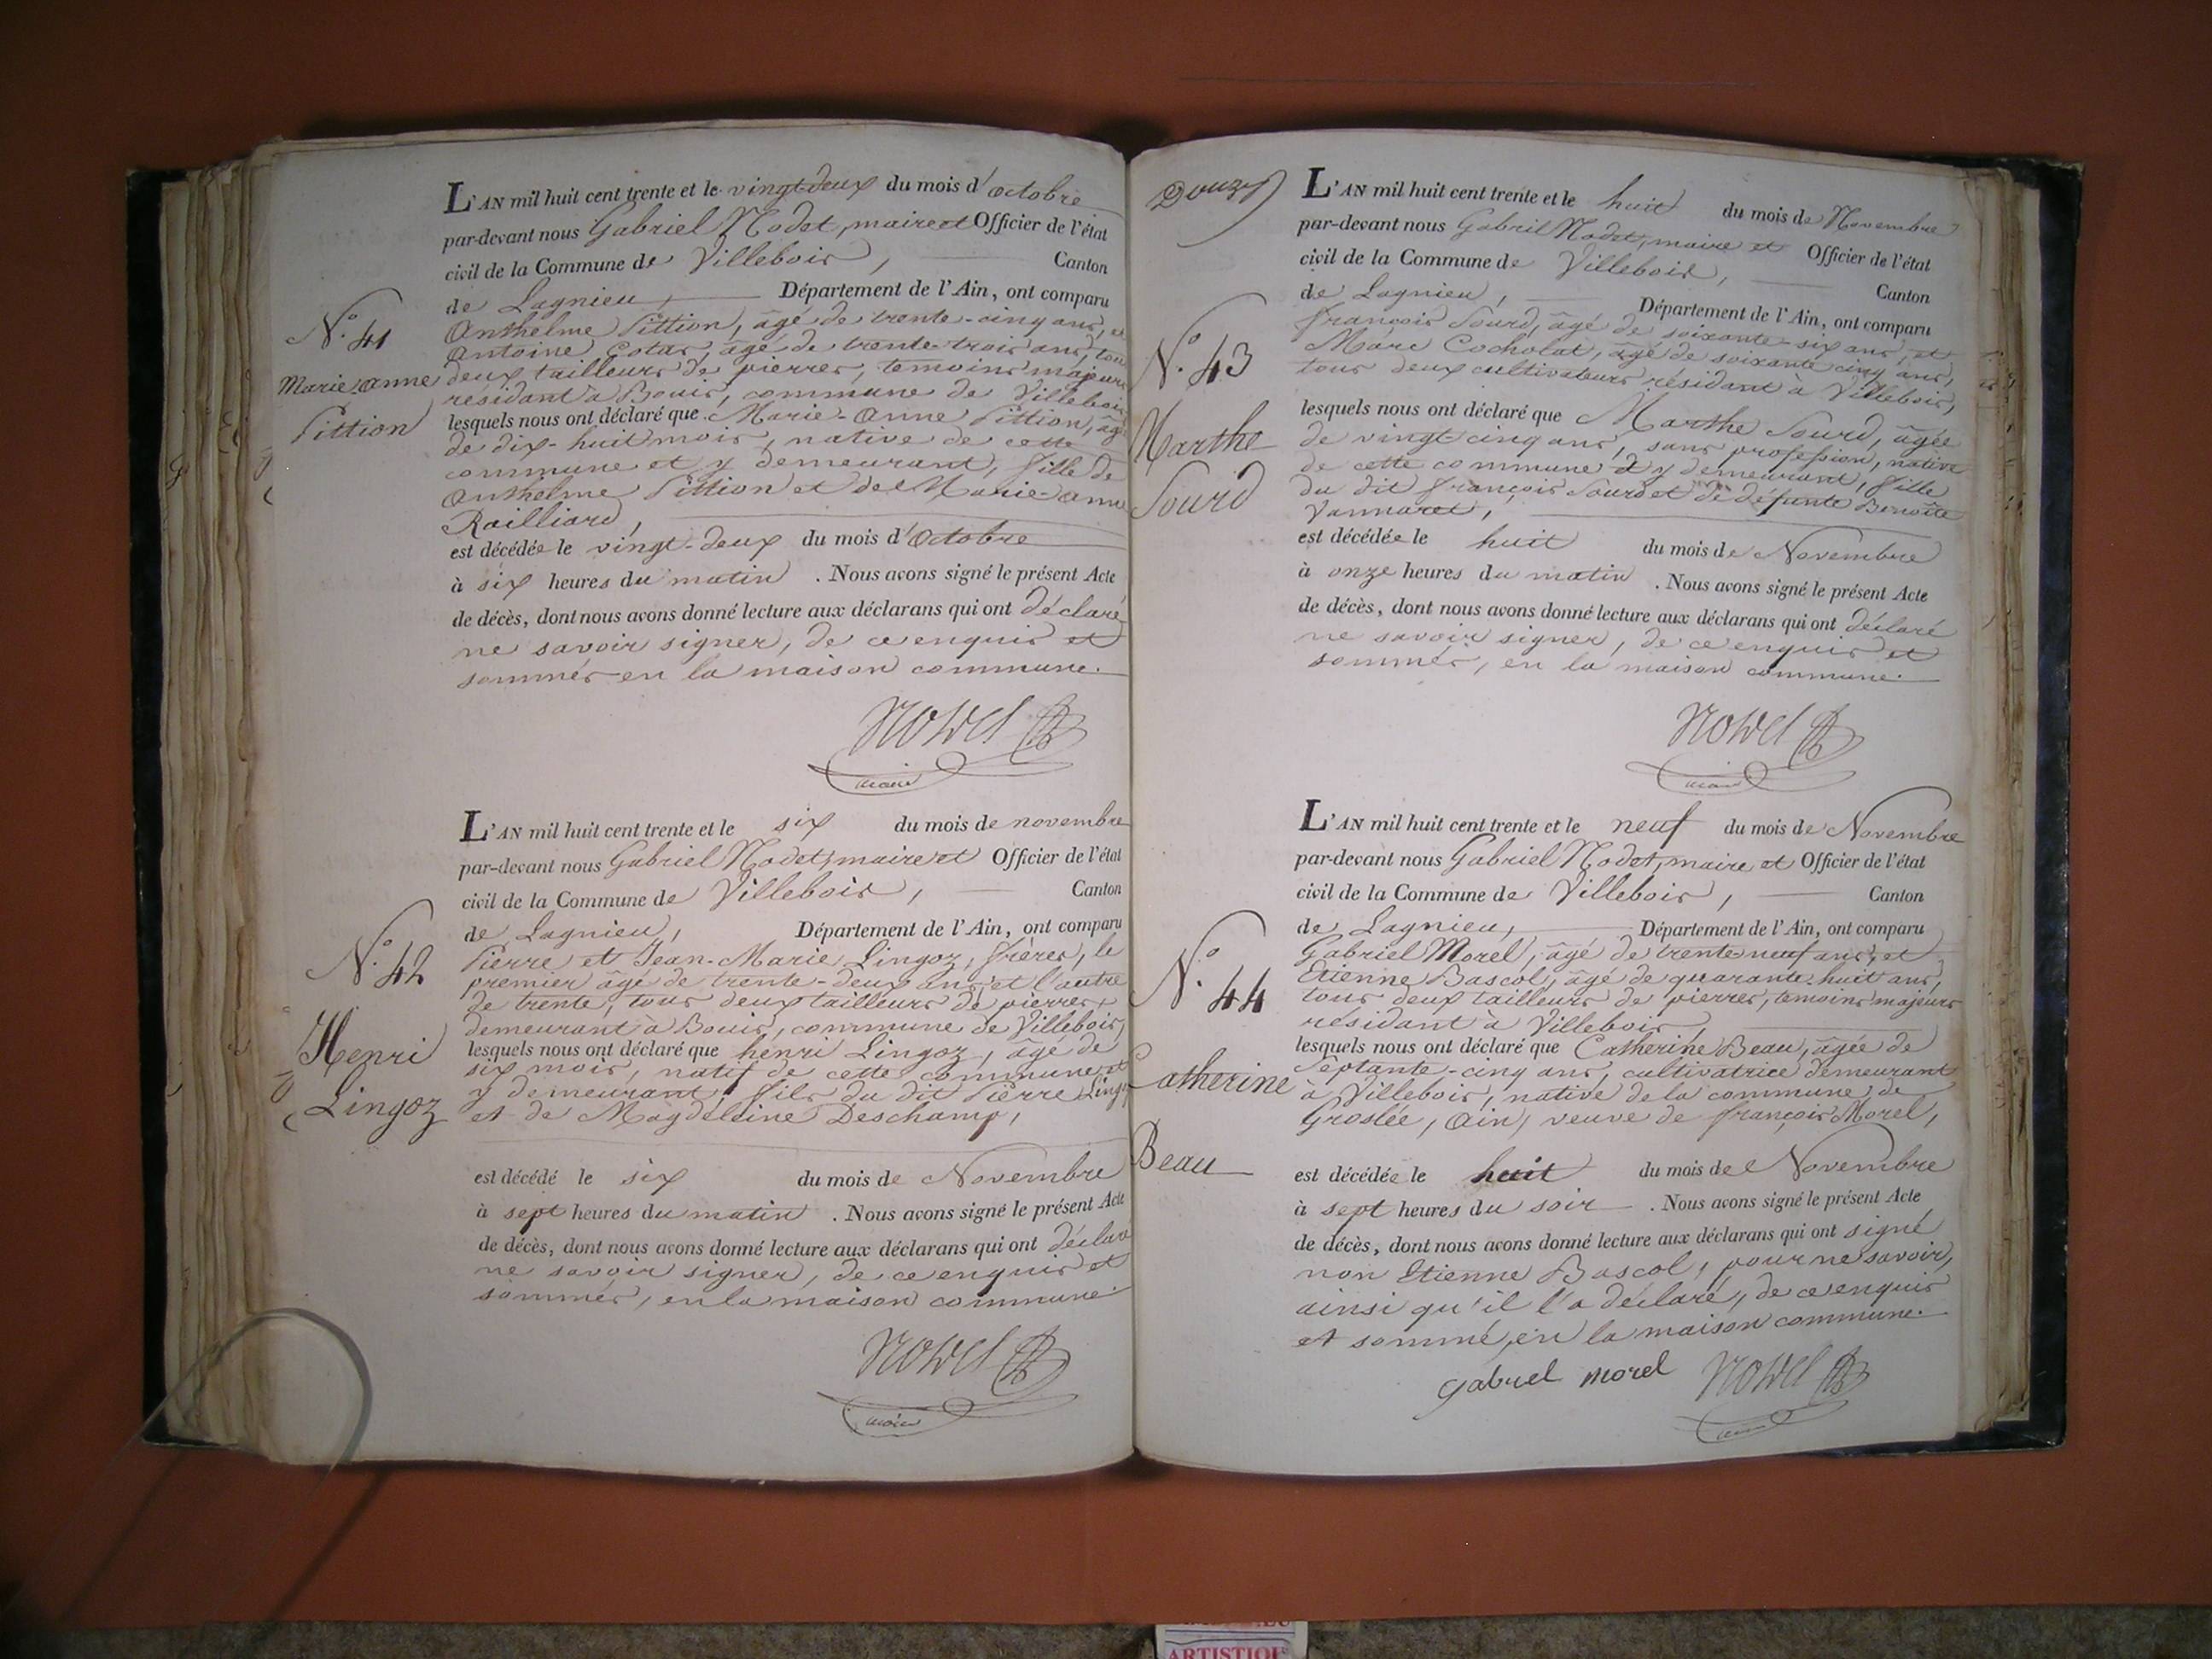 L'AN mil huit cent trente et le vingt-deux du mois d'octobre
par-devant nous Gabriel Nodet, maire et Officier de l'état
civil de la Commune de Villebois, Canton
de Lagnieu, Département de l'Ain, ont comparu
N.o 41
Anthelme Pittion, âgé de trente-cinq ans, et
Antoine Cotar, âgé de trente-trois ans, tous
Marie anne
Pittion
deux tailleurs de pierres, temoins majeurs
résidant à Bouis, commune de Villebois,
lesquels nous ont déclaré que Marie-Anne Pittion, âg
de dix-huit mois, native de cette
commune et y demeurant, fille de
Anthelme Pittion et de Marie-anne
Railliard,
est décédée le vingt-deux du mois d'Octobre
à six heures du matin . Nous avons signé le présent Acte
de décès, dont nous avons donné lecture aux déclarans qui ont déclaré
ne savoir signer, de ce enquis et
sommés en la maison commune.
Nodet
maire
L'AN mil huit cent trente et le six du mois de novembre
par-devant nous Gabriel Nodet, maire et Officier de l'état
civil de la Commune de Villebois, Canton
de Lagnieu, Département de l'Ain, ont comparu
N.o 42
Henri
Lingoz
Pierre et Jean-Marie Lingoz, frères, le
premier âgé de trente-deux ans et l'autre
de trente, tous deux tailleurs de pierres,
demeurant à Bouis, commune de Villebois,
lesquels nous ont déclaré que henri Lingoz, âgé de
six mois, natif de cette commune et
y demeurant, fils du dit Pierre Lingoz
et de Magdeleine Deschamp,
est décédé le six du mois de Novembre
à sept heures du matin . Nous avons signé le présent Acte
de décès, dont nous avons donné lecture aux déclarans qui ont déclaré
ne savoir signer, de ce enquis et
sommés, en la maison commune.
Nodet
maire
Douze
L'AN mil huit cent trente et le huit du mois de Novembre
par-devant nous Gabriel Nodet, maire et Officier de l'état
civil de la Commune de Villebois, Canton
de Lagnieu, Département de l'Ain, ont comparu
N.o 43
Marthe
Sourd
françois Sourd, âgé de soixante-six ans, et
Marc Cocholat, âgé de soixante cinq ans,
tous deux cultivateurs résidant à Villebois,
lesquels nous ont déclaré que Marthe Sourd, âgée
de vingt-cinq ans, sans profession, native
de cette commune et y demeurant, fille
du dit françois Sourd et de défunte Benoîte
Vannaret,
est décédée le huit du mois de Novembre
à onze heures du matin . Nous avons signé le présent Acte
de décès, dont nous avons donné lecture aux déclarans qui ont déclaré
ne savoir signer, de ce enquis et
sommés, en la maison commune.
Nodet
maire
L'AN mil huit cent trente et le neuf du mois de Novembre
par-devant nous Gabriel Nodet, maire et Officier de l'état
civil de la Commune de Villebois, Canton
de Lagnieu, Département de l'Ain, ont comparu
N.o 44
Catherine
Beau
Gabriel Morel, âgé de trente neuf ans, et
Etienne Bascol, âgé de quarante-huit ans,
tous deux tailleurs de pierres, temoins majeurs
résidant à Villebois,
lesquels nous ont déclaré que Catherine Beau, âgée de
Septante-cinq ans, cultivatrice demeurant
à Villebois, native de la commune de
Groslée, Ain, veuve de françois Morel,
est décédée le huit du mois de Novembre
à sept heures du soir . Nous avons signé le présent Acte
de décès, dont nous avons donné lecture aux déclarans qui ont signé
non Etienne Bascol, pour ne savoir,
ainsi qu'il l'a déclaré, de ce enquis
et sommé, en la maison commune.
gabriel morel Nodet
maire
ARTISTIQUE